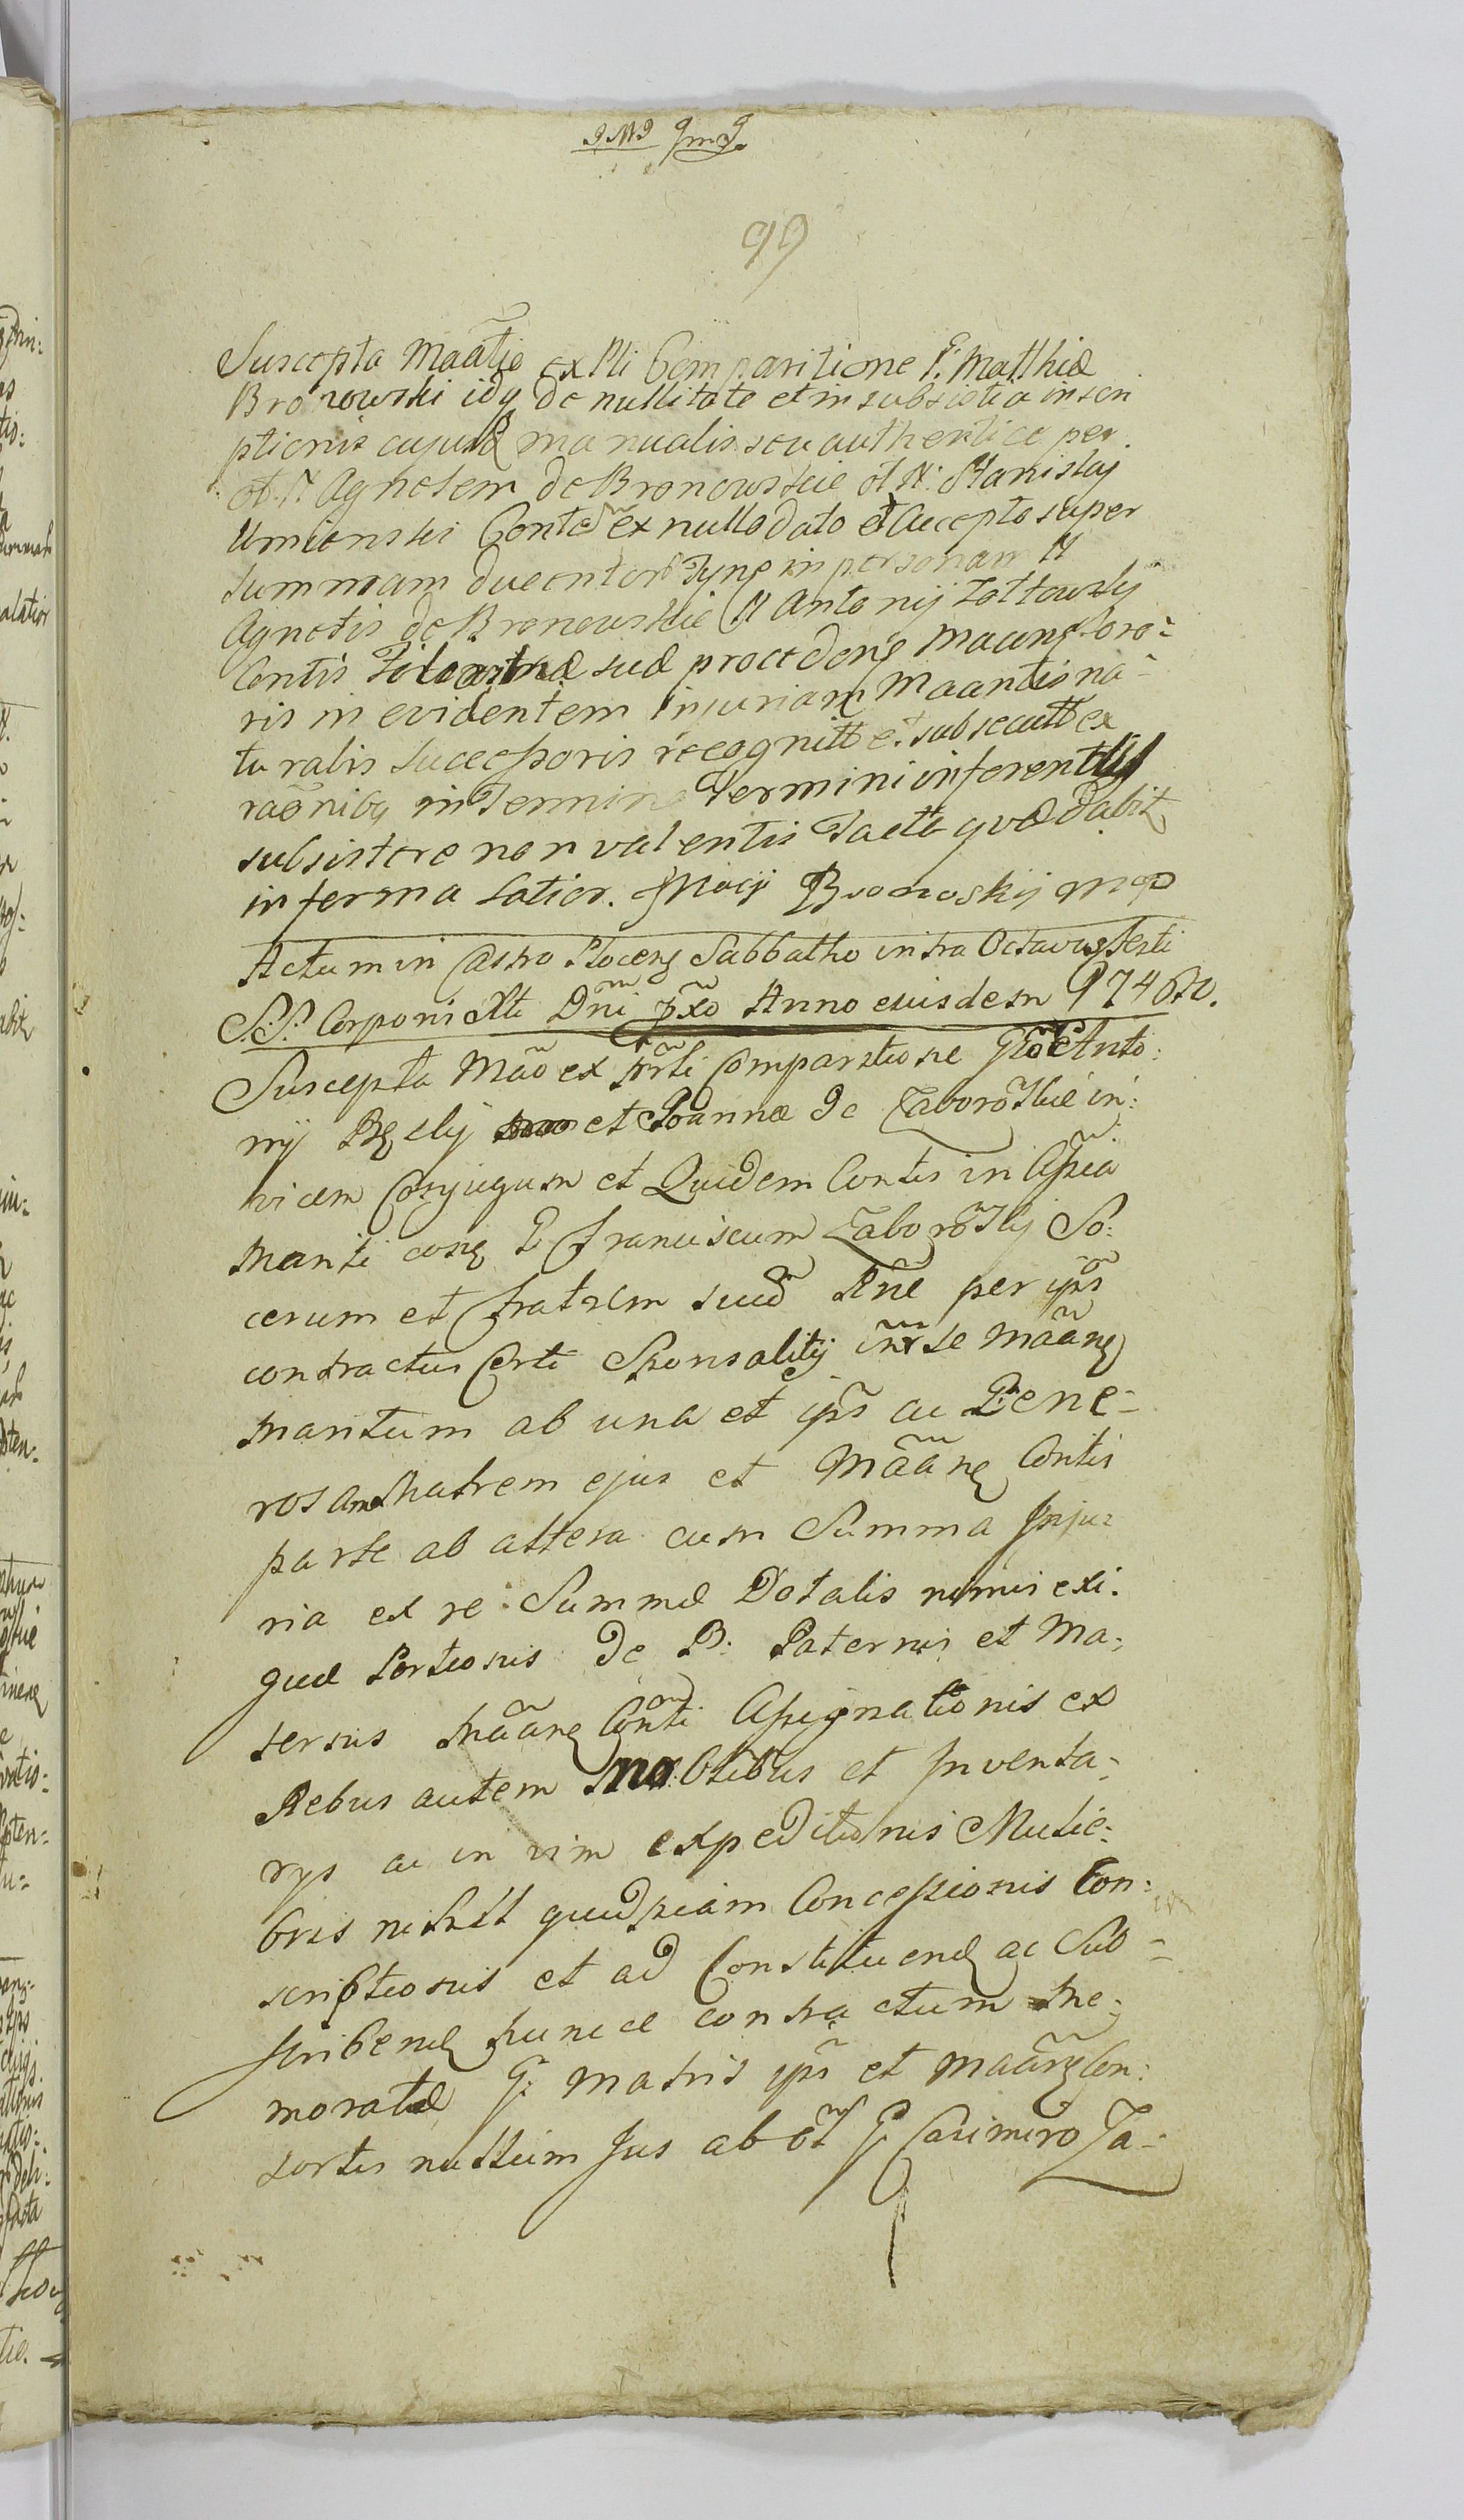 99
Suscepta Maãtio ex Pti Comparitione G. Matthiæ
Bronowski idq de nullitate et in subsistẽtia inscri
ptionis cujusd manualis seu authenticæ per
ol. N Agnetem de Bronowskie ol N: Stanislaj
Umienski Contẽ ex nullo dato et Accepto super
summam ducentor Tynf in personam N
Agnetis de Bronowskie N Antonij Zottowskj
Contis suæ procedenę Maanę Soro-
ris in evidentem injuriam Maantis na-
turalis Successoris recognitt et subsecutt ex
raõnibq in Termino Termini inferentt
subsistere non valentis Facta qvæ dabit
in forma latior. Bronoskij mp
Actum in Castro Plocenę Sabbatho intra Octavas festi
S.S. Corporis Xti Dñi pxõ Anno ejusdem 1746to.
Suscepta Mão ex prñti Comparitione Gõ Anto:
nij et Joannæ de Zaboroskie in:
vicem Conjugum et Quidem Contis in Assia
Mariti cong G Franciscum Zaboroskj So:
cerum et fratrem suũ Rñe per ips
contractus Certi Sponsalitij inr se Mããnę
maritum ab una et ips ac Gene-
rosam Matrem ejus et Mããnę Contis
parte ab altera cum Summa Inju-
ria ex re Summæ Dotalis nimis exi.
guæ Portionis de B. Paternis et Ma:
ternis Mããnę Conti Assignationis ex
Rebus autem Mobilibus et Inventa-
rys ac in vim expeditionis Mulie:
bris nihil quidpiam Concessionis Con:
scriptionis et ad Constituend ac Sub-
scribend hunce contractum Me:
moratæ G. Matris ips et Maãnę Con:
sortis nullum Jus ab ol G Casimiro Za-